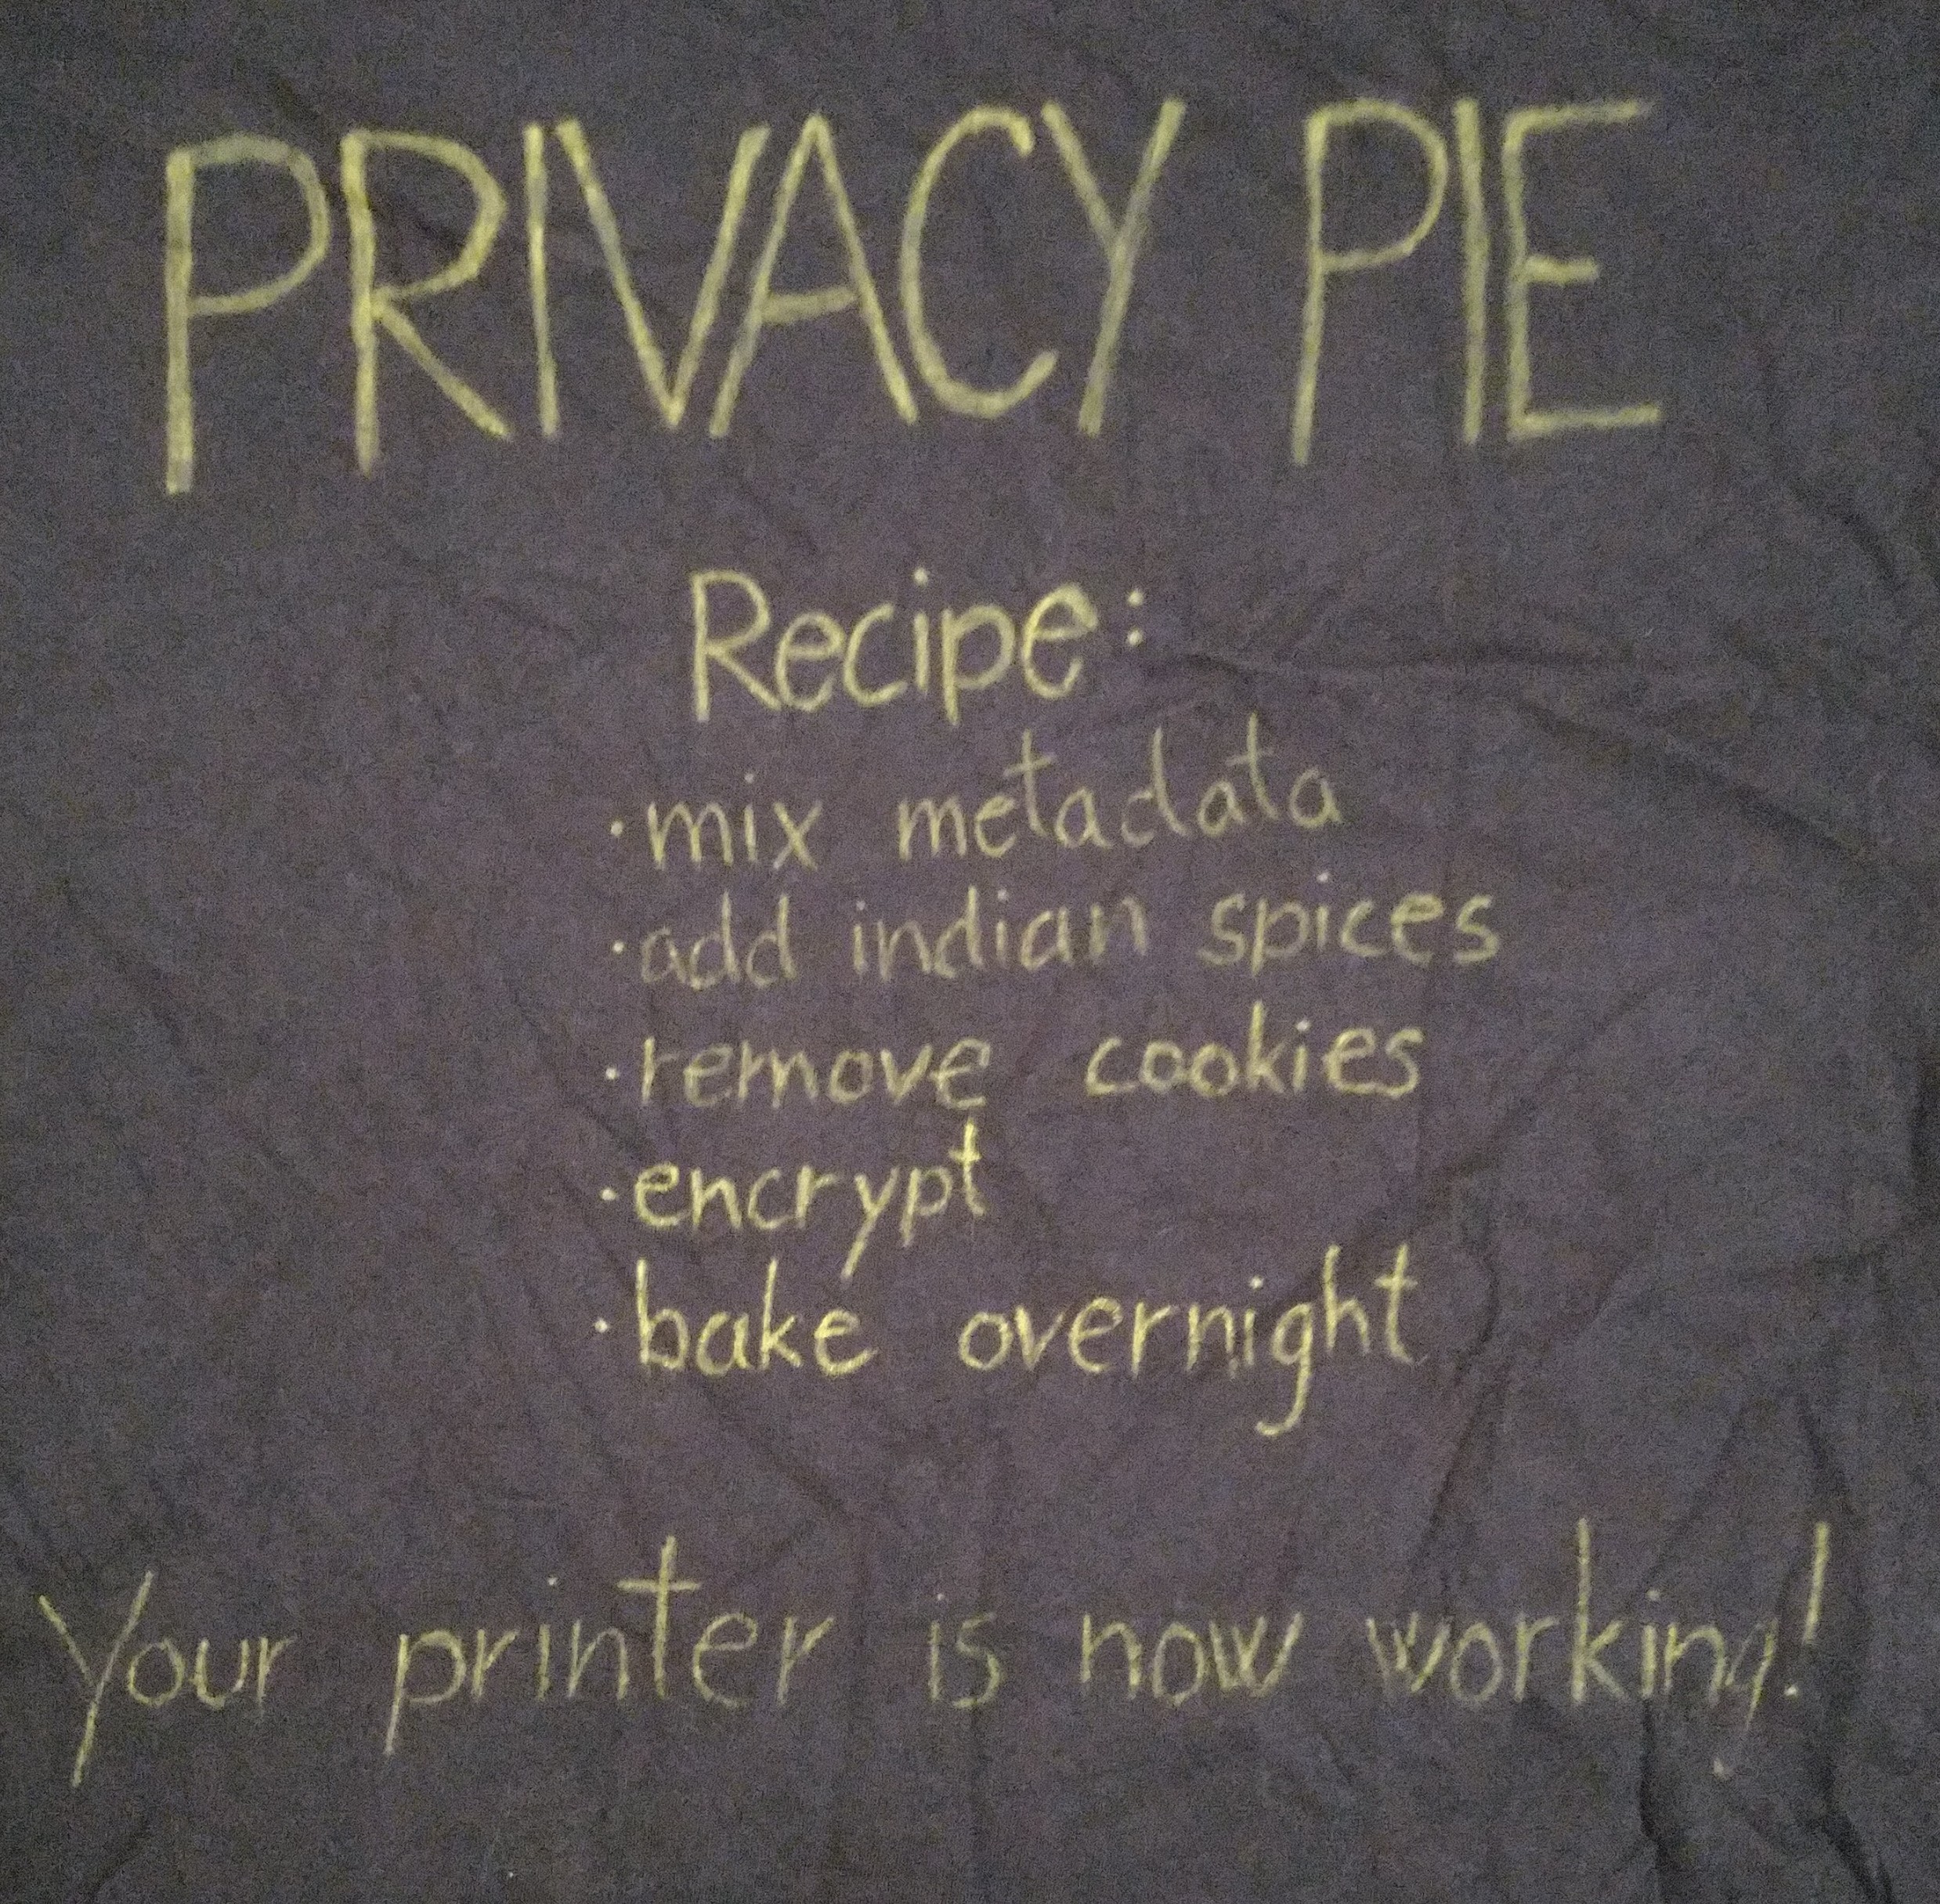 PRIVACY PIE
Recipe:
·mix metadata
·add indian spices
·remove cookies
·encrypt
·bake overnight
Your printer is now working!